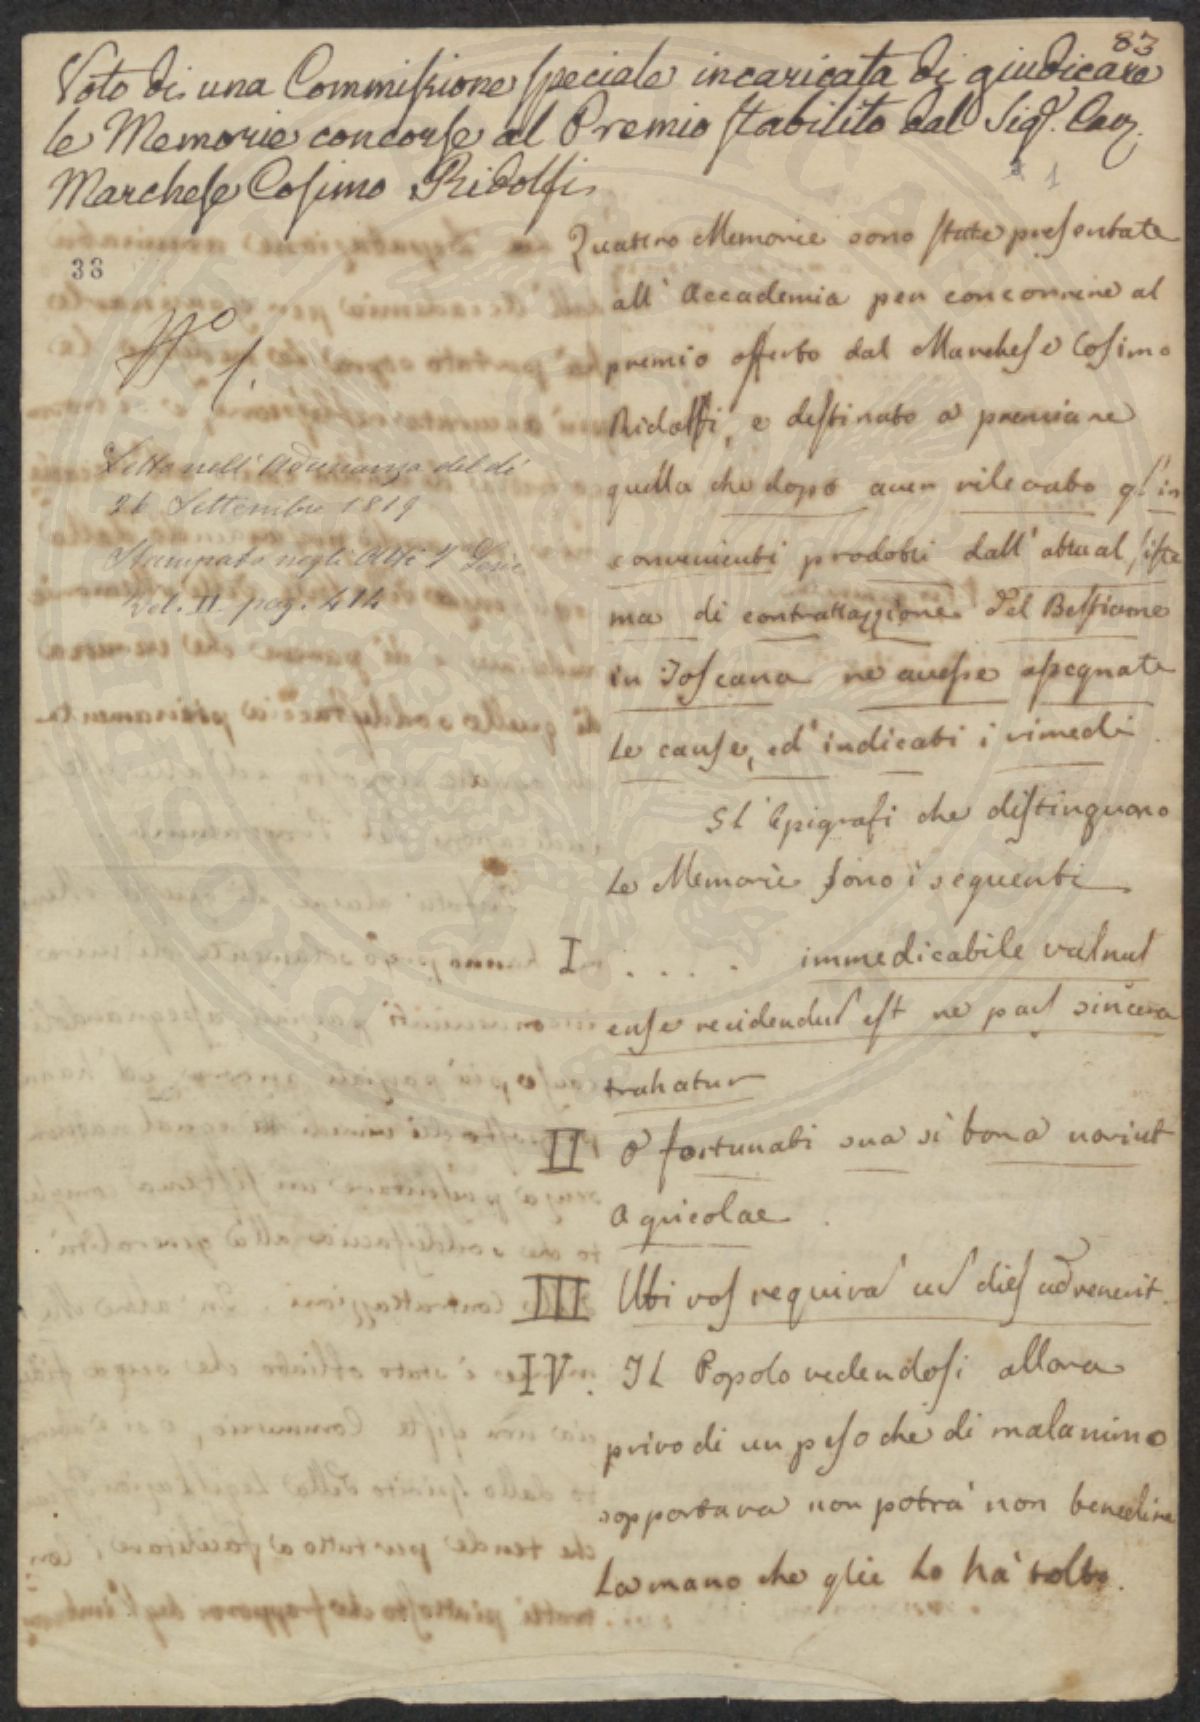 83
Voto di una Commissione speciale incaricata di giudicare
le Memorie concorse al Premio stabilito dal Sigr. Cav.
Marchese Cosimo Ridolfi
1
38
Quattro Memorie sono state presentate
all' Accademia per concorrere al
premio offerto dal Marchese Cosimo
Ridolfi, e destinato a premiare
quella che dopo aver rilevato gl'in
convenienti prodotti dall' attual siste
ma di contrattazzione del Bestiame
in Toscana ne avesse assegnate
le cause, ed' indicati i rimedi.
Letto nell' Adunanza del dì
26 Settembre 1819
Stampato negli Atti
Vol. II. pag. 414
Gl' Epigrafi che distinguono
le Memorie sono i seguenti
I . . . . immedicabile vulnus
ense recidendus est ne pars sincera
trahatur
II o fortunati sua si bona norint
Agricolae.
III Ubi vos requiram cum dies advenerit.
IV. Il Popolo vedendosi allora
privo di un peso che di malanimo
sopportava non potrà non benedire
la mano che glie lo ha tolto.